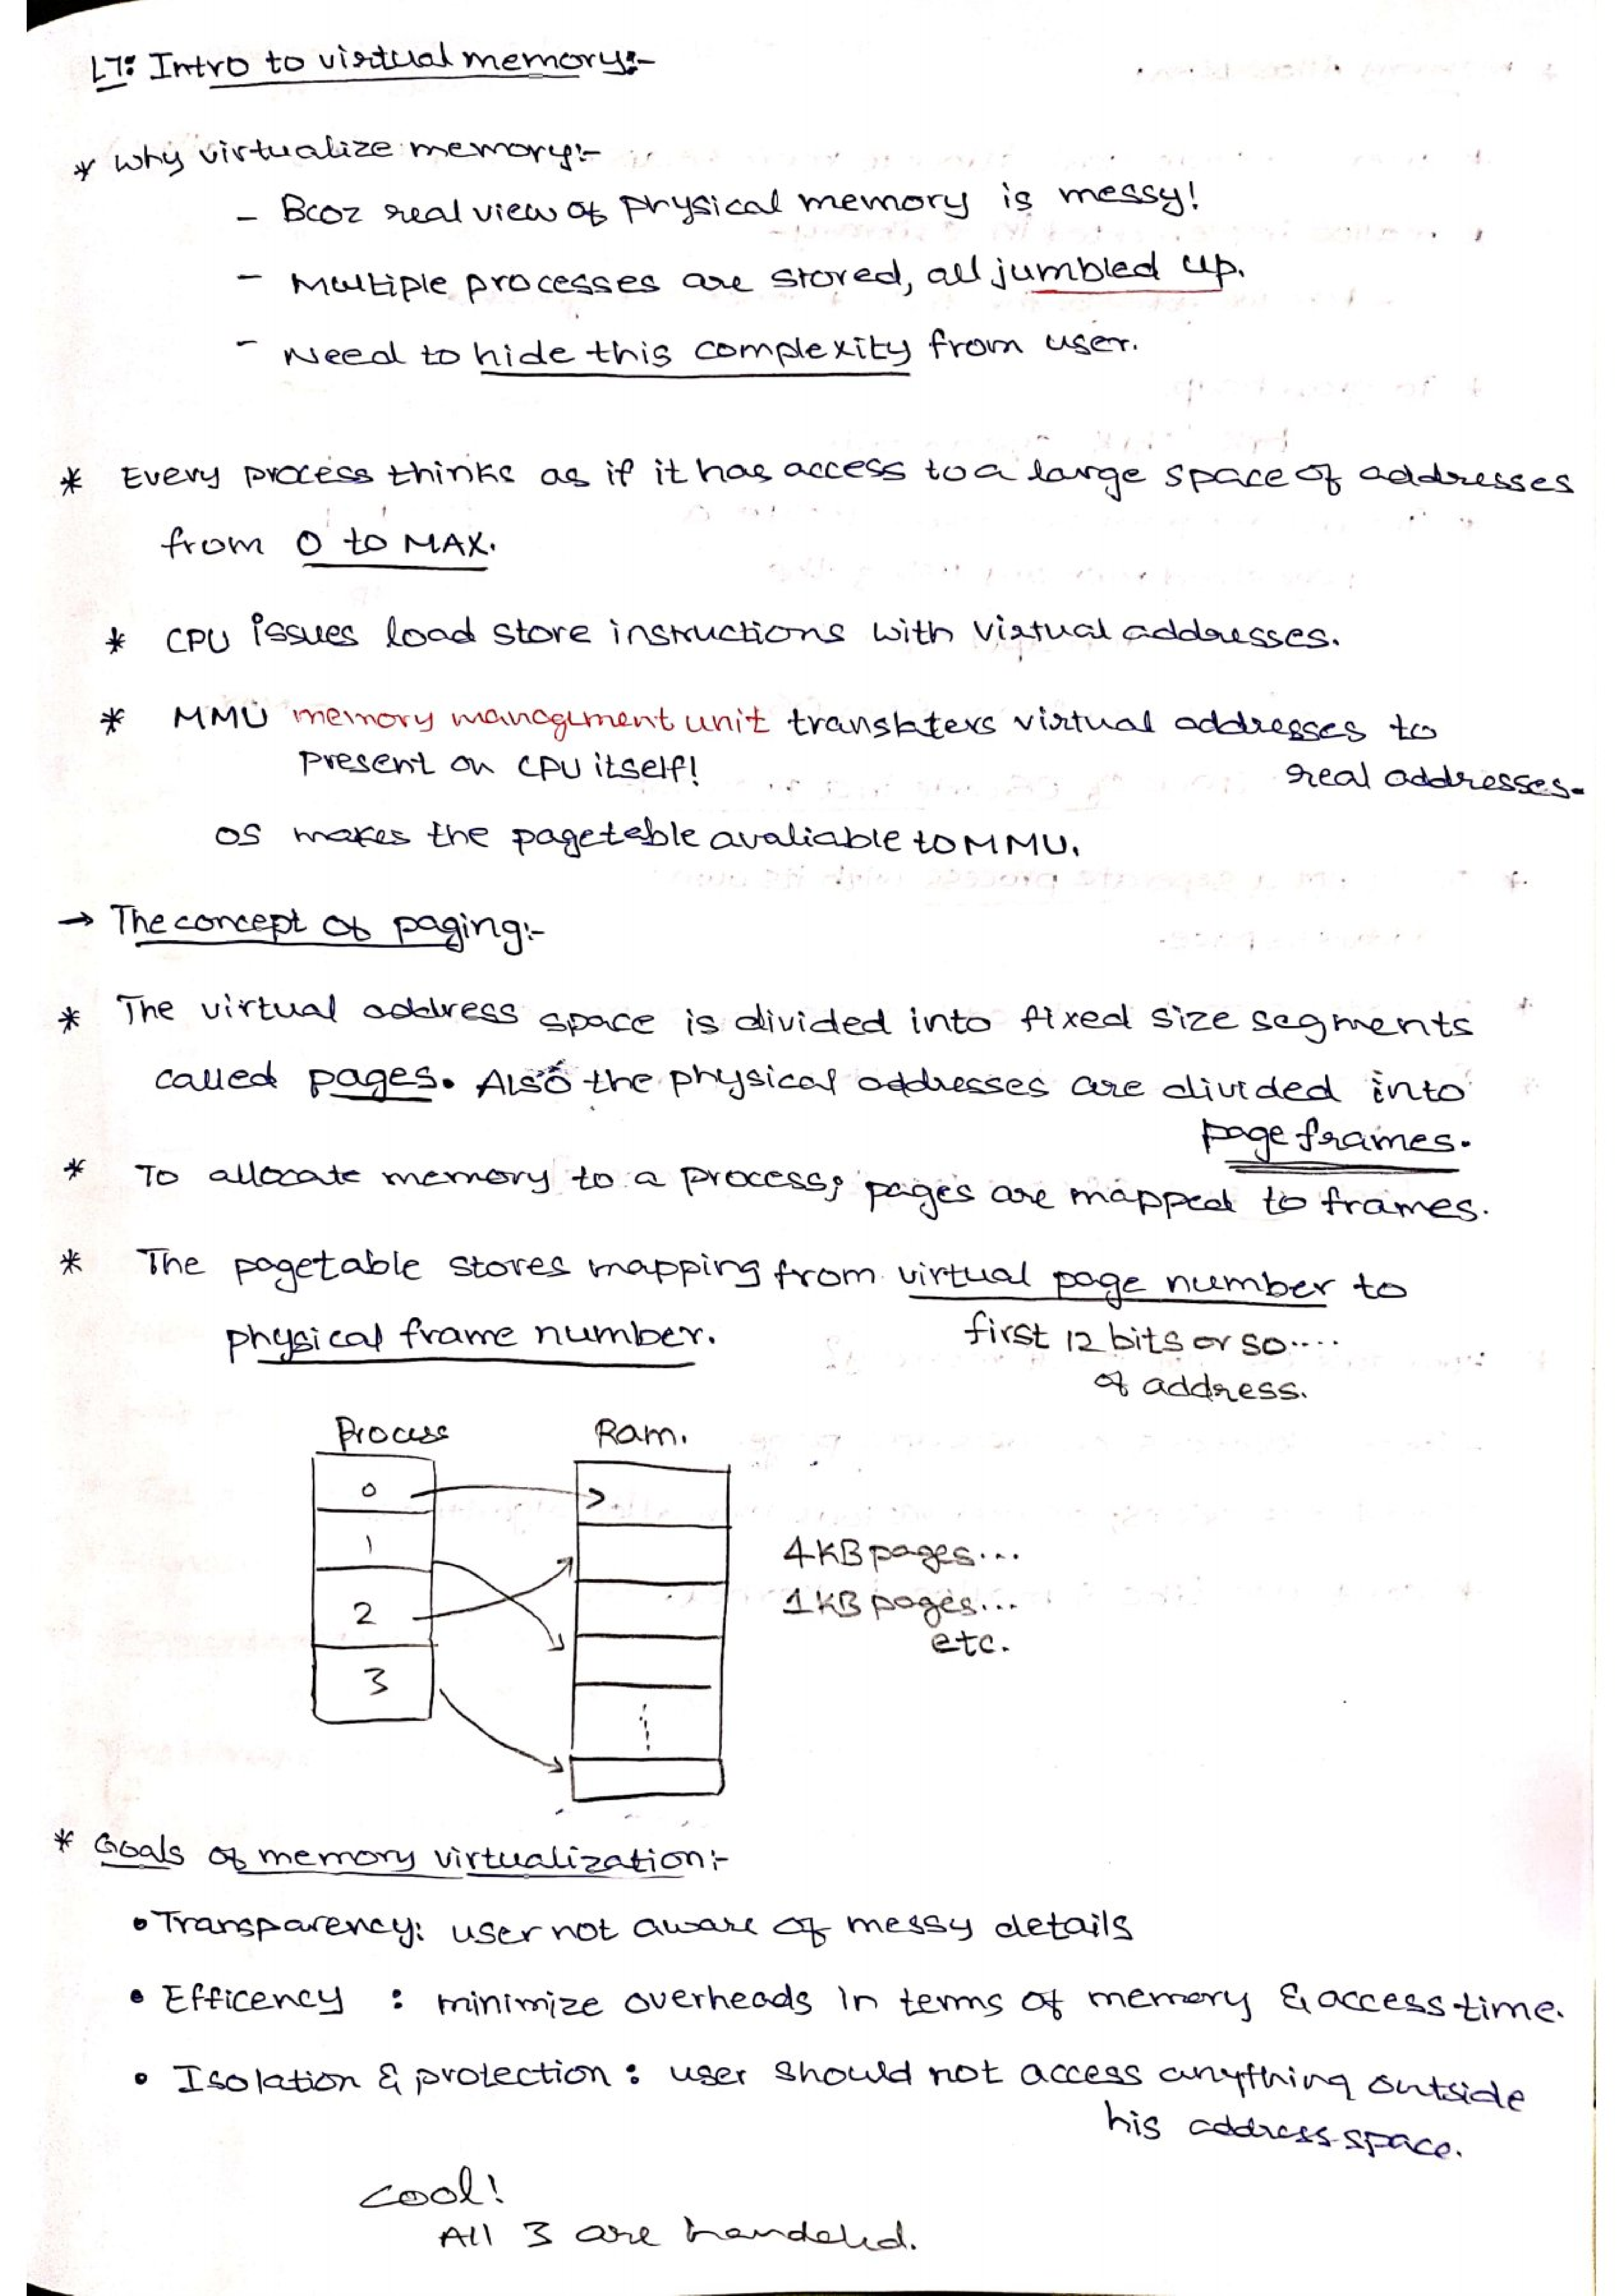 L7: Intro to virtual memory:-
* Why virtualize memory:-
- Bcoz real view of physical memory is messy!
- Multiple processes are stored, all jumbled up.
- Need to hide this complexity from user.
* Every process thinks as if it has access to a large space of addresses
from 0 to MAX.
* CPU issues load store instructions with virtual addresses.
* MMU memory managment unit translaters virtual addresses to
present on CPU itself!
real addresses.
OS makes the pagetable avaliable to MMU.
→ The concept of paging:-
* The virtual address space is divided into fixed size segments
called pages. Also the physical addresses are divided into
page frames.
* To allocate memory to a process; pages are mapped to frames.
* The pagetable stores mapping from virtual page number to
physical frame number.
first 12 bits or so....
of address.
Process
Ram.
0
1
2
3
4KB pages...
1KB pages...
etc.
* Goals of memory virtualization:-
• Transparency: user not aware of messy details
• Efficency : minimize overheads in terms of memory & access time.
• Isolation & protection : user should not access anything outside
his address space.
cool!
All 3 are handeled.